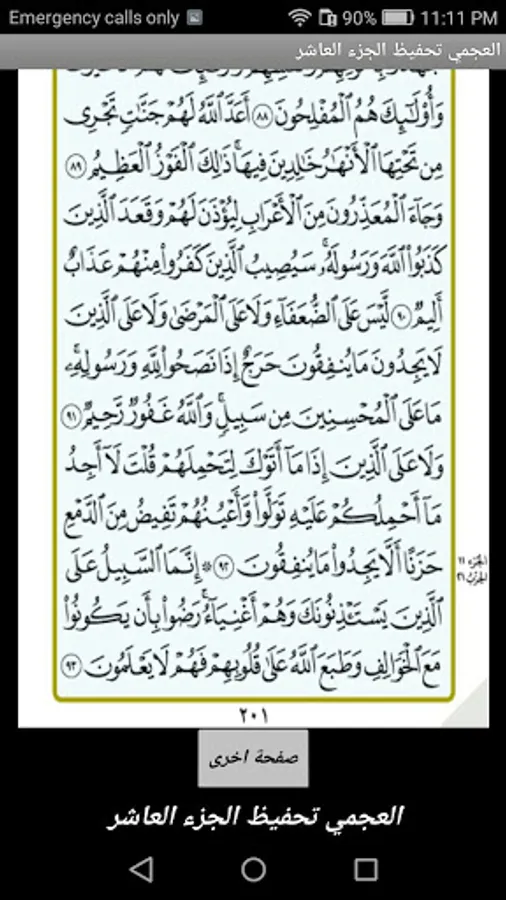 Emergency calls only 90% 11:11 PM
العجمي تحفيظ الجزء العاشر
وَأُوْلَٰٓئِكَ هُمُ ٱلْمُفْلِحُونَ ٨٨ أَعَدَّ ٱللَّهُ لَهُمْ جَنَّٰتٍ تَجْرِى
مِن تَحْتِهَا ٱلْأَنْهَٰرُ خَٰلِدِينَ فِيهَا ۚ ذَٰلِكَ ٱلْفَوْزُ ٱلْعَظِيمُ ٨٩
وَجَآءَ ٱلْمُعَذِّرُونَ مِنَ ٱلْأَعْرَابِ لِيُؤْذَنَ لَهُمْ وَقَعَدَ ٱلَّذِينَ
كَذَبُوا۟ ٱللَّهَ وَرَسُولَهُۥ ۚ سَيُصِيبُ ٱلَّذِينَ كَفَرُوا۟ مِنْهُمْ عَذَابٌ
أَلِيمٌ ٩٠ لَّيْسَ عَلَى ٱلضُّعَفَآءِ وَلَا عَلَى ٱلْمَرْضَىٰ وَلَا عَلَى ٱلَّذِينَ
لَا يَجِدُونَ مَا يُنفِقُونَ حَرَجٌ إِذَا نَصَحُوا۟ لِلَّهِ وَرَسُولِهِۦ ۚ
مَا عَلَى ٱلْمُحْسِنِينَ مِن سَبِيلٍ ۚ وَٱللَّهُ غَفُورٌ رَّحِيمٌ ٩١
وَلَا عَلَى ٱلَّذِينَ إِذَا مَآ أَتَوْكَ لِتَحْمِلَهُمْ قُلْتَ لَآ أَجِدُ
مَآ أَحْمِلُكُمْ عَلَيْهِ تَوَلَّوا۟ وَّأَعْيُنُهُمْ تَفِيضُ مِنَ ٱلدَّمْعِ
حَزَنًا أَلَّا يَجِدُوا۟ مَا يُنفِقُونَ ٩٢ ۞ إِنَّمَا ٱلسَّبِيلُ عَلَى
الجزء ١١
الحزب ٢١
ٱلَّذِينَ يَسْتَـْٔذِنُونَكَ وَهُمْ أَغْنِيَآءُ ۚ رَضُوا۟ بِأَن يَكُونُوا۟
مَعَ ٱلْخَوَالِفِ وَطَبَعَ ٱللَّهُ عَلَىٰ قُلُوبِهِمْ فَهُمْ لَا يَعْلَمُونَ ٩٣
٢٠١
صفحة اخرى
العجمي تحفيظ الجزء العاشر